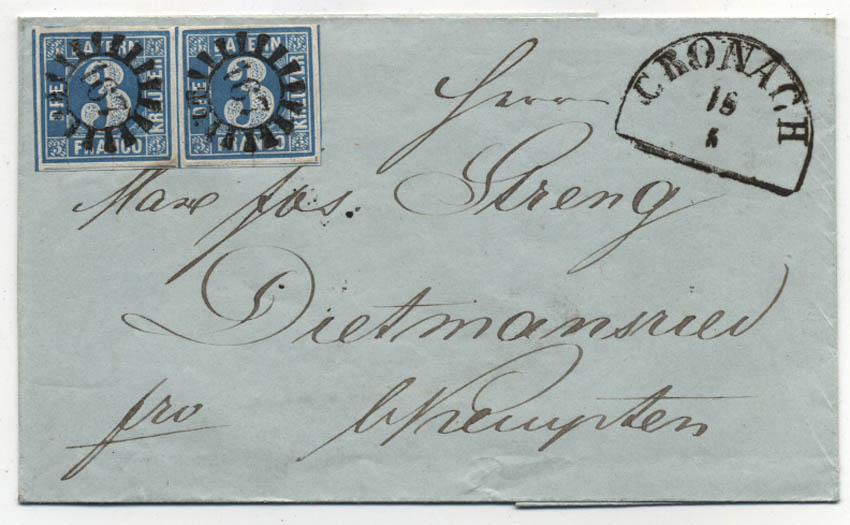 BAYERN
DREI 3 KREUZER
FRANCO
BAYERN
DREI 3 KREUZER
FRANCO
CRONACH
18
5
Herrn
Max Jos. Streng
Dietmansried
fro b/Kempten